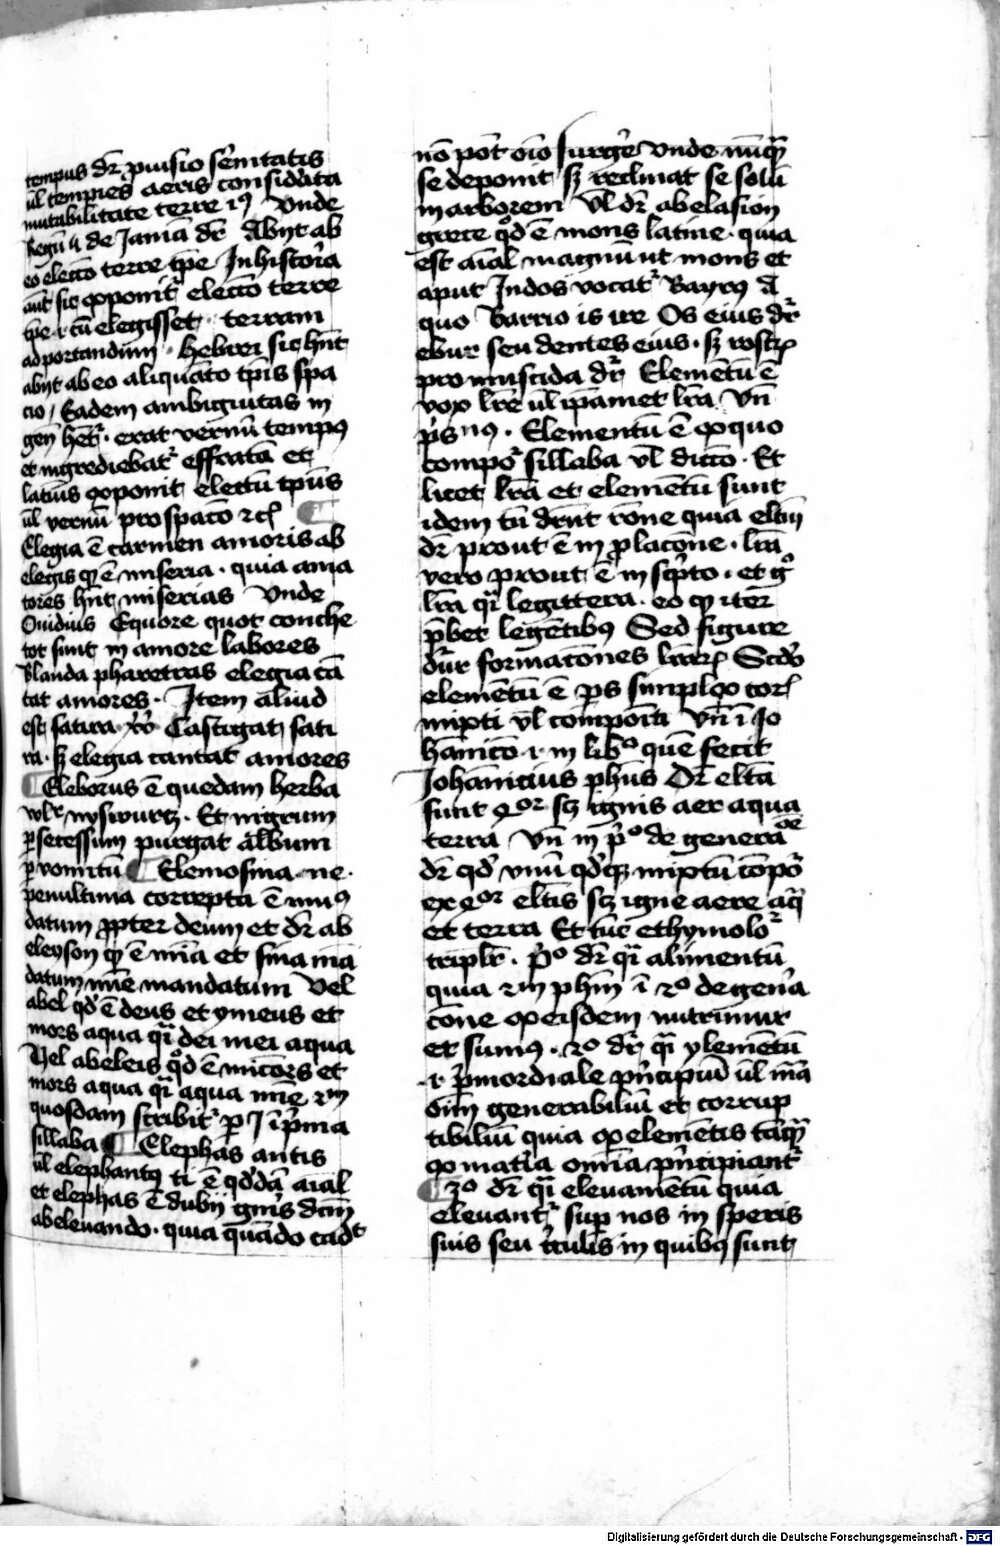 tempus dr̄ puisio serēitatis
ul̄ tempies aeris considata
mutabilitate terre iꝰ Vnde
Regū 4 de Jamā dr̄ Abyt ab
eo electō terre tp̄e Jn histoꝛia
aut̄ sic ꝯponitʳ electō terre
tp̄e .i. cū elegisset terram
ad portandum · Hebrei sic hn̄t
abyt ab eo aliquāto tp̄is spa
cio / Eadem ambiguitas in
gen̄ hetʳ · erat vernū tempꝰ
et ingrediebatʳ effratā et
latinis ꝯponit electū tp̄us
ul̄ vernū pro spatō ⁊cꝫ
Elegia ē carmen amoris ab
elegis qꝫ ē miseria · quia ama
tores hn̄t miserias Vnde
Ouidius Equore quot conche
tot sunt in amore labores
Blanda pharetras elegia cā
tat amores · Jtem aliud
est satira Castigat sati
ra · sꝫ elegia cantat amores
Eleborus ē quedam herba
wlr̄ nyswurtz · Et nigrum
ꝑ secessum purgat album
ꝑ vomitū Elemosina · ne ·
penultima correpta ē munꝰ
datum ꝓpter deum et dr̄ ab
eleyson qꝫ ē mīa et sina mā
datum mīe mandatum Vel
abel qd̄ ē deus et ymeus et
mors aqua q̄i dei mei aqua
Vel abeleis qd̄ ē mīcors et
mors aqua q̄i aqua mīe ⁊m
quosdam scribitʳ ꝑ J ī p̄ma
sillaba Elephas antis
ul̄ elephantꝰ ti ē qd̄dā aīal
et elephas ē dubij gn̄is dcm̄
ab eleuando · quia quādo cadt
nō pōt oīo surgẽ Vnde nūqꝫ
se deponit sꝫ reclinat se solū
in arborem Vl̄ dr̄ ab elasion
grece qd̄ ē mons latine · quia
est aīal magnū ut mons et
aput Jndos vocatʳ Barrꝰ A
quo Barrio is ire Os eius dr̄
ebur seu dentes eius · sꝫ rostꝝ
promuscida dr̄ Elemētū ē
vox lr̄e ul̄ ipāmet lr̄a Vn̄
p̄sⁿꝰ · Elementū ē ex quo
compoʳ sillaba vl̄ dictō · Et
licet lr̄a et elemētū sunt
idem tn̄ drn̄t rōne quia eltm̄
dr̄ prout ē in ꝓlacōne · lr̄a
vero prout ē in scp̄to · et gᵒ
lr̄a q̄i legittera · eo qꝫ iter
p̄bet legētibꝰ Sed figure
dr̄r formacōnes lr̄arꝝ Scdō
elemētū ē p̄s simplex corꝝ
mixti vl̄ compoīti Vn̄ ī Jo
hanicō .i. in libᵒ quē fecit
Johanicius phūs Dr̄ eltā
sunt qᵒʳ scꝫ ignis aer aqua
terra Vn̄ in p̄ᵒ de generaᵒᵉ
dr̄ qd̄ vnū qd̄qꝫ mixtū cōpoʳ
ex qᵒʳ eltīs scꝫ igne aere aq̄
et terra Et tūc ethymoloʳ
triplr̄ · p̄ᵒ dr̄ q̄i alimentū
quia ⁊m phm̄ ī ⁊ᵒ de gen̄a
cōne ex eisdem nutrimur
et sumꝰ · ⁊ᵒ dr̄ q̄i ylemētū
.i. p̄mordiale p̄ncipiū ul̄ mā
oīm generabiliū et corrup
tibiliū quia ex elemētis tāqꝫ
ex mat̄ia omīa p̄ncipiantʳ
3ᵒ dr̄ q̄i eleuamētū quia
eleuantʳ sup nos in speris
suis seu cīculis in quibꝰ sunt
Digitalisierung gefördert durch die Deutsche Forschungsgemeinschaft · DFG